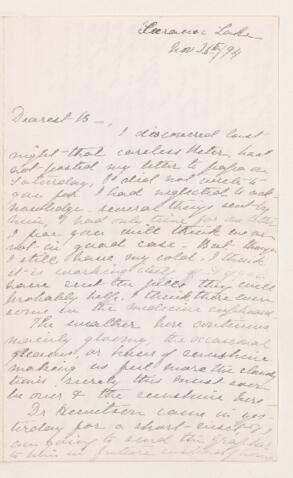 Saranac Lake
Nov 25th/94
Dearest B—,
I discovered last
night that careless Peter, had
not posted my letter to papa on
Saturday, I did not write to
you for I had neglected to ack-
nowledge several things sent by
him, I had only time for one letter
I fear you will think me
not in good case. But though
I still have my cold, I think
it is working itself off & if you
have sent the pills they will
probably help, I think there were
some in the medicine cupboard.
The weather here continues
mainly gloomy, the occasional
gleams, or hours of sunshine
making us feel more the cloudy
times, surely this must soon
be over & the sunshine here
Dr came in yes-
terday for a short
am going to send the
to him in future